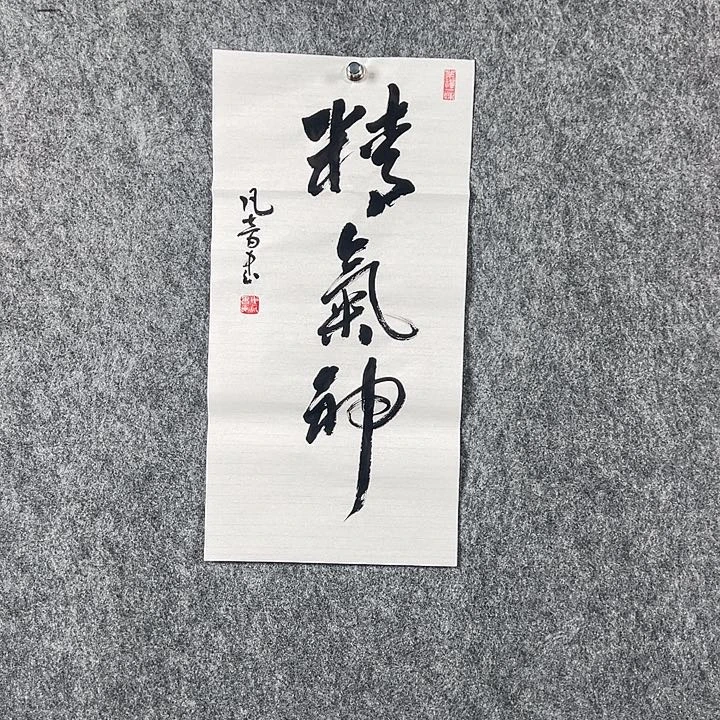 精氣神
凡音書